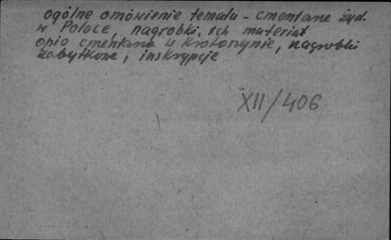 ogólne omówienie tematu - cmentarze żyd.
w Polsce, nagrobki, ich materiał
opis cmentarza w Krotoszynie, nagrobki
zabytkowe, inskrypcje
XII/406